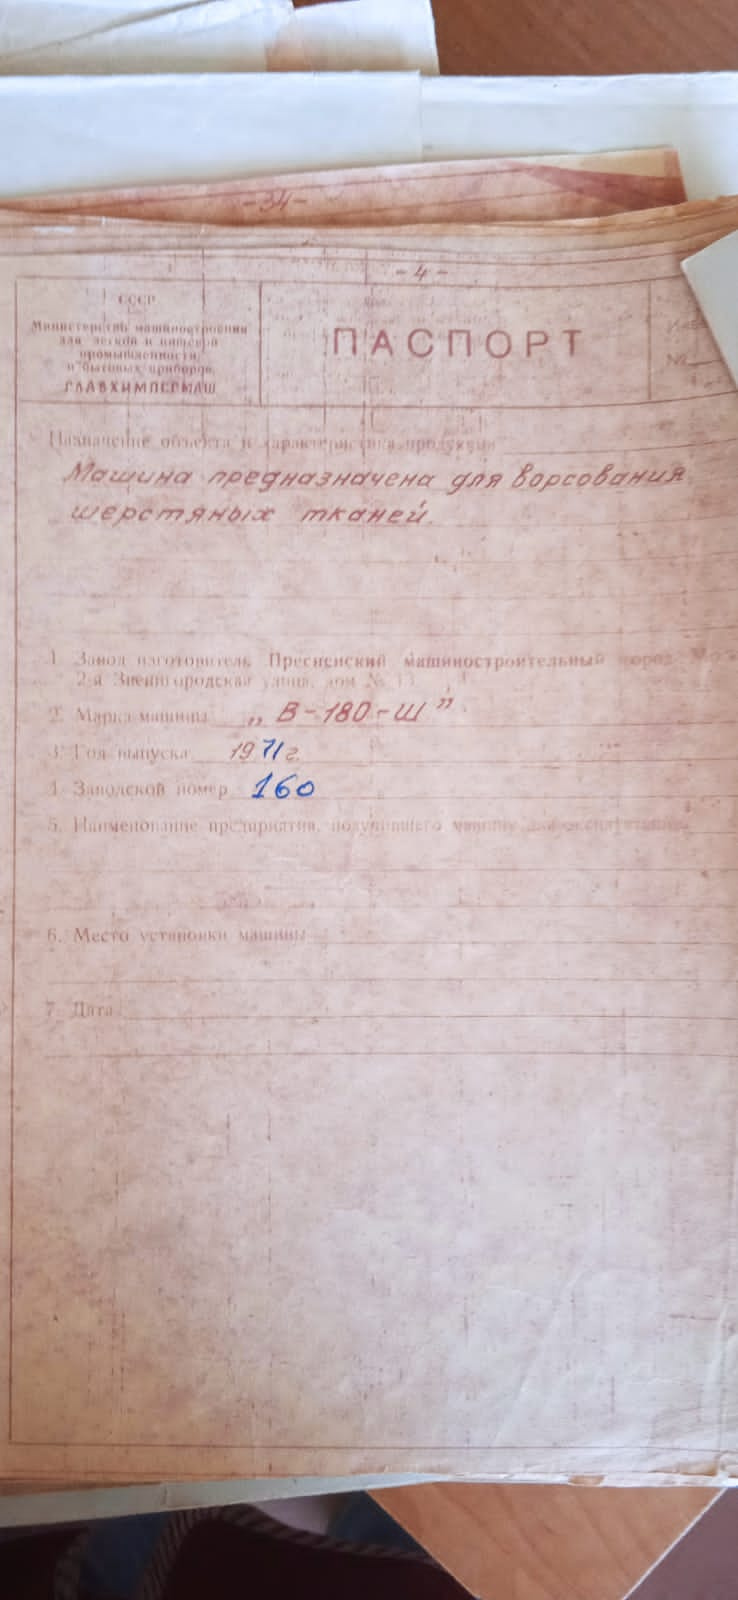 -34-
-4-
СССР
Министерство машиностроения
для легкой и пищевой
промышленности
и бытовых приборов
ГЛАВХИМЛЕГМАШ
ПАСПОРТ
№
Назначение объекта и характеристика продукции
Машина предназначена для ворсования
шерстяных тканей.
1. Завод изготовитель Пресненский машиностроительный город
2-я Звенигородская улица, дом № 13
2. Марка машины „В-180-Ш"
3. Год выпуска 1971 г.
4. Заводской номер 160
5. Наименование предприятия, получившего машину для эксплуатации
6. Место установки машины
7. Дата